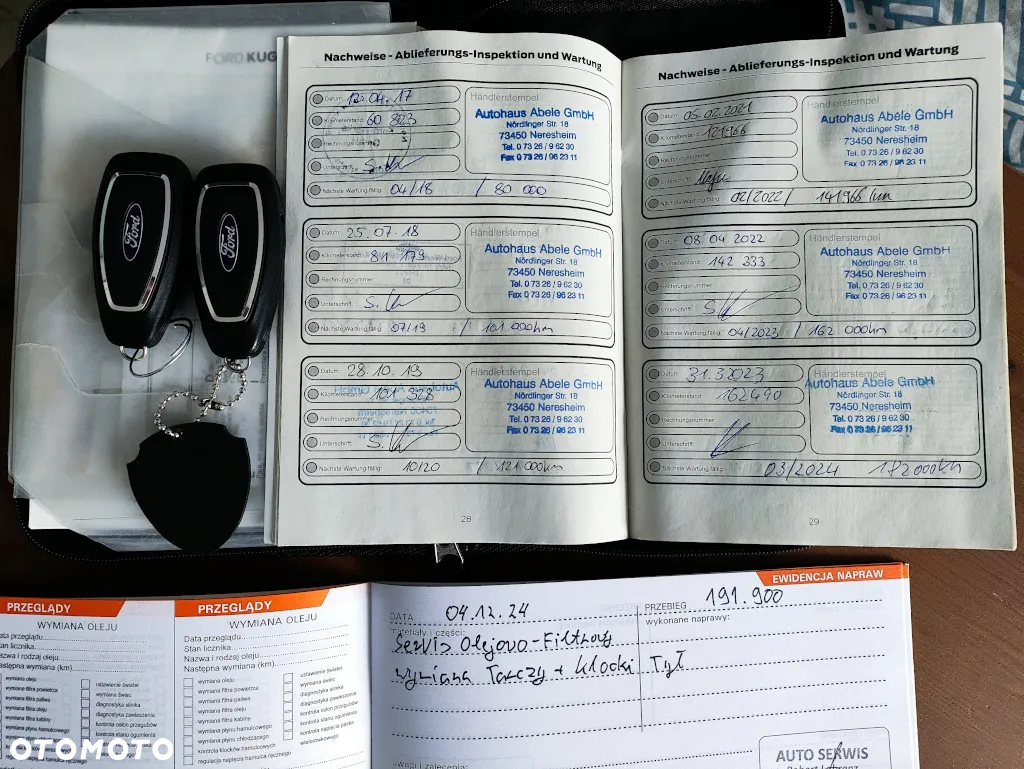 FORD KUG
Nachweise - Ablieferungs-Inspektion und Wartung
Datum: 12.04.17
Kilometerstand: 60 823
Rechnungsnummer
Unterschrift:
Nächste Wartung fällig: 04/18 / 80 000
Händlerstempel
Autohaus Abele GmbH
Nördlinger Str. 18
73450 Neresheim
Tel. 0 73 26 / 9 62 30
Fax 0 73 26 / 96 23 11
Datum: 25.07.18
Kilometerstand: 81 173
Rechnungsnummer
Unterschrift:
Nächste Wartung fällig: 07/19 / 101 000km
Händlerstempel
Autohaus Abele GmbH
Nördlinger Str. 18
73450 Neresheim
Tel. 0 73 26 / 9 62 30
Fax 0 73 26 / 96 23 11
Datum: 28.10.19
Kilometerstand: 101 328
Rechnungsnummer
Unterschrift:
Nächste Wartung fällig: 10/20 / 121 000km
Händlerstempel
Autohaus Abele GmbH
Nördlinger Str. 18
73450 Neresheim
Tel. 0 73 26 / 9 62 30
Fax 0 73 26 / 96 23 11
28
Nachweise - Ablieferungs-Inspektion und Wartung
Datum: 05.02.2021
Kilometerstand: 121966
Rechnungsnummer
Unterschrift:
Nächste Wartung fällig: 02/2022 / 141966 km
Händlerstempel
Autohaus Abele GmbH
Nördlinger Str. 18
73450 Neresheim
Tel. 0 73 26 / 9 62 30
Fax 0 73 26 / 96 23 11
Datum: 08 04 2022
Kilometerstand: 142 333
Rechnungsnummer
Unterschrift:
Nächste Wartung fällig: 04/2023 / 162 000km
Händlerstempel
Autohaus Abele GmbH
Nördlinger Str. 18
73450 Neresheim
Tel. 0 73 26 / 9 62 30
Fax 0 73 26 / 96 23 11
Datum: 31.3.2023
Kilometerstand: 162490
Rechnungsnummer
Unterschrift:
Nächste Wartung fällig: 03/2024 182000km
Händlerstempel
Autohaus Abele GmbH
Nördlinger Str. 18
73450 Neresheim
Tel. 0 73 26 / 9 62 30
Fax 0 73 26 / 96 23 11
29
Ford
Ford
PRZEGLĄDY
WYMIANA OLEJU
Data przeglądu
Stan licznika
Nazwa i rodzaj oleju
Następna wymiana (km)
wymiana oleju
wymiana filtra powietrza
wymiana filtra paliwa
wymiana filtra oleju
wymiana filtra kabiny
wymiana płynu hamulcowego
ustawienie świateł
wymiana świec
diagnostyka silnika
diagnostyka zawieszenia
kontrola osłon przegubów
kontrola stanu ogumienia
PRZEGLĄDY
WYMIANA OLEJU
Data przeglądu
Stan licznika
Nazwa i rodzaj oleju
Następna wymiana (km)
wymiana oleju
wymiana filtra powietrza
wymiana filtra paliwa
wymiana filtra oleju
wymiana filtra kabiny
wymiana płynu hamulcowego
wymiana płynu chłodzącego
kontrola klocków hamulcowych
regulacja napięcia hamulca ręcznego
ustawienie świateł
wymiana świec
diagnostyka silnika
diagnostyka zawieszenia
kontrola osłon przegubów
kontrola stanu ogumienia
kontrola napięcia paska
wielorowkowego
EWIDENCJA NAPRAW
DATA 04.12.24
PRZEBIEG 191.900
materiały i części:
wykonane naprawy:
Serwis Olejowo-Filtrowy
wymiana Tarczy + klocki Tył
uwagi i zalecenia:
AUTO SERWIS
OTOMOTO